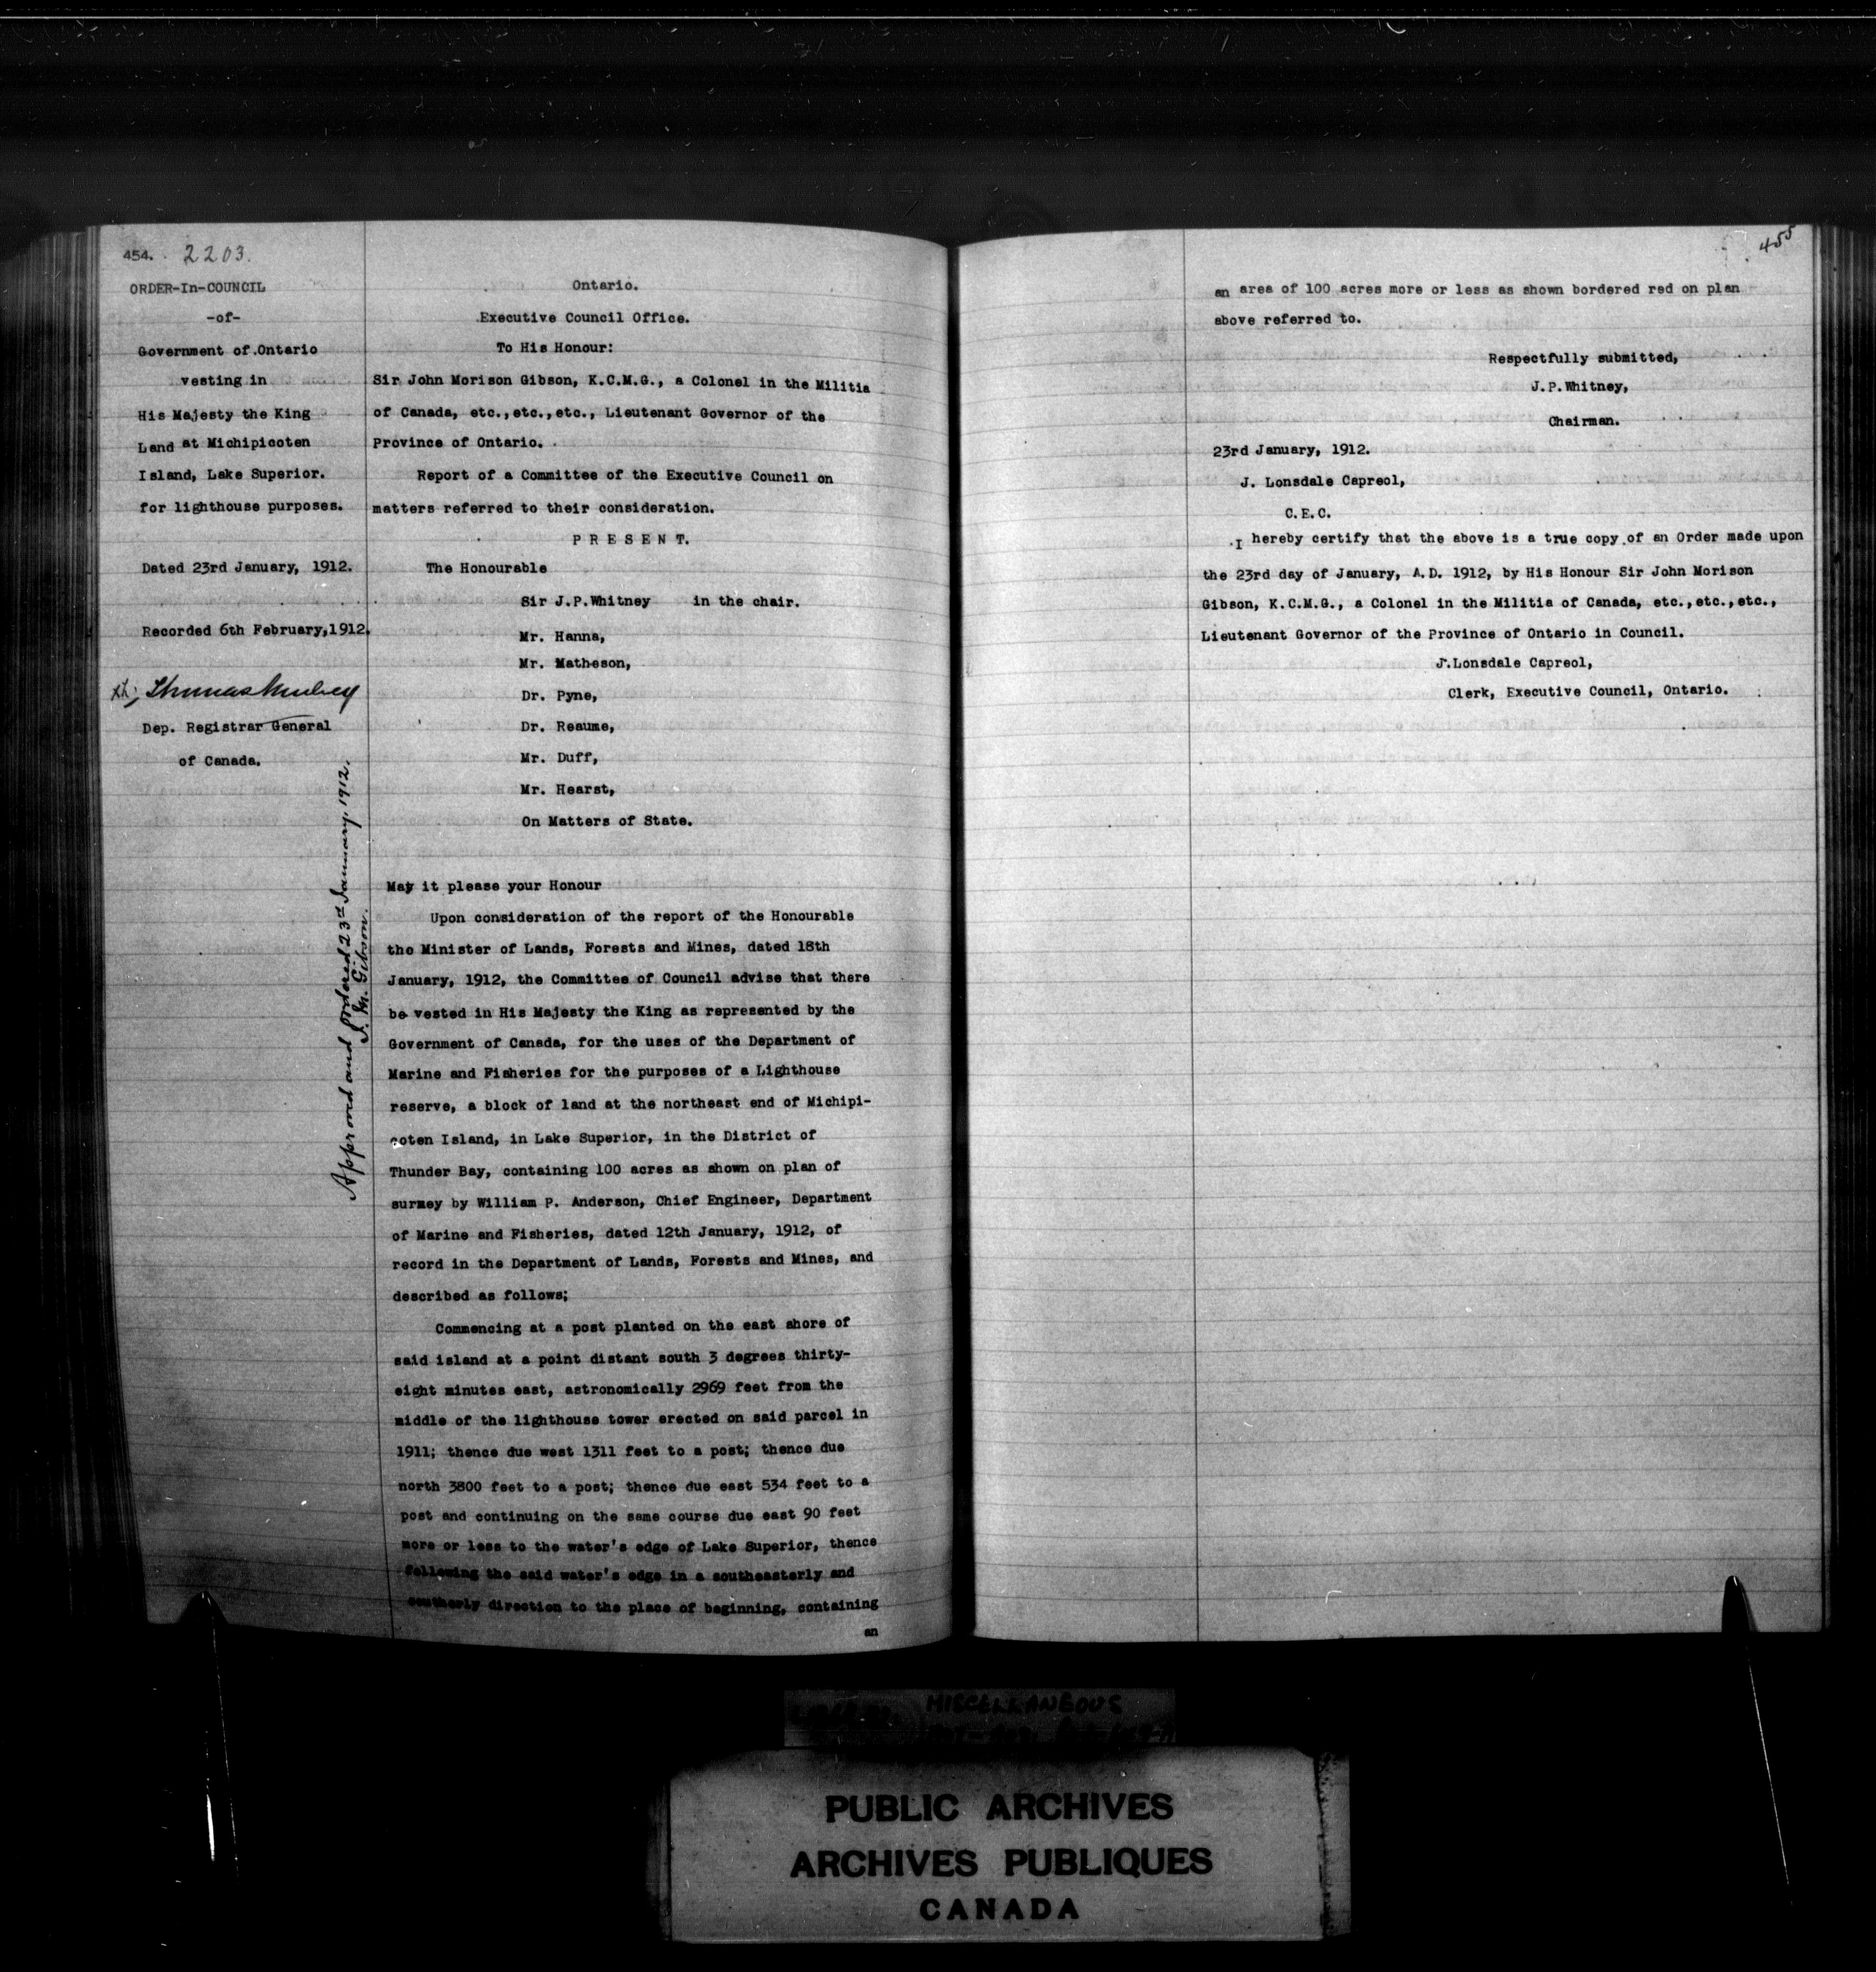 454. 2203.
ORDER-In-COUNCIL
-of-
Government of Ontario
vesting in
His Majesty the King
Land at Michipicoten
Island, Lake Superior.
for lighthouse purposes.
Dated 23rd January, 1912.
Recorded 6th February,1912.
Thomas Mulvey
Dep. Registrar General
of Canada.
Approved and Ordered 23rd January, 1912.
J. M. Gibson.
Ontario.
Executive Council Office.
To His Honour:
Sir John Morison Gibson, K.C.M.G., a Colonel in the Militia
of Canada, etc.,etc.,etc., Lieutenant Governor of the
Province of Ontario.
Report of a Committee of the Executive Council on
matters referred to their consideration.
P R E S E N T.
The Honourable
Sir J.P.Whitney in the chair.
Mr. Hanna,
Mr. Matheson,
Dr. Pyne,
Dr. Reaume,
Mr. Duff,
Mr. Hearst,
On Matters of State.
May it please your Honour
Upon consideration of the report of the Honourable
the Minister of Lands, Forests and Mines, dated 18th
January, 1912, the Committee of Council advise that there
be vested in His Majesty the King as represented by the
Government of Canada, for the uses of the Department of
Marine and Fisheries for the purposes of a Lighthouse
reserve, a block of land at the northeast end of Michipi-
coten Island, in Lake Superior, in the District of
Thunder Bay, containing 100 acres as shown on plan of
surmey by William P. Anderson, Chief Engineer, Department
of Marine and Fisheries, dated 12th January, 1912, of
record in the Department of Lands, Forests and Mines, and
described as follows;
Commencing at a post planted on the east shore of
said island at a point distant south 3 degrees thirty-
eight minutes east, astronomically 2969 feet from the
middle of the lighthouse tower erected on said parcel in
1911; thence due west 1311 feet to a post; thence due
north 3800 feet to a post; thence due east 534 feet to a
post and continuing on the same course due east 90 feet
more or less to the water's edge of Lake Superior, thence
following the said water's edge in a southeasterly and
southerly direction to the place of beginning, containing
an
455
an area of 100 acres more or less as shown bordered red on plan
above referred to.
Respectfully submitted,
J.P.Whitney,
Chairman.
23rd January, 1912.
J. Lonsdale Capreol,
C.E.C.
I hereby certify that the above is a true copy of an Order made upon
the 23rd day of January, A.D. 1912, by His Honour Sir John Morison
Gibson, K.C.M.G., a Colonel in the Militia of Canada, etc.,etc.,etc.,
Lieutenant Governor of the Province of Ontario in Council.
J.Lonsdale Capreol,
Clerk, Executive Council, Ontario.
MISCELLANEOUS
PUBLIC ARCHIVES
ARCHIVES PUBLIQUES
CANADA